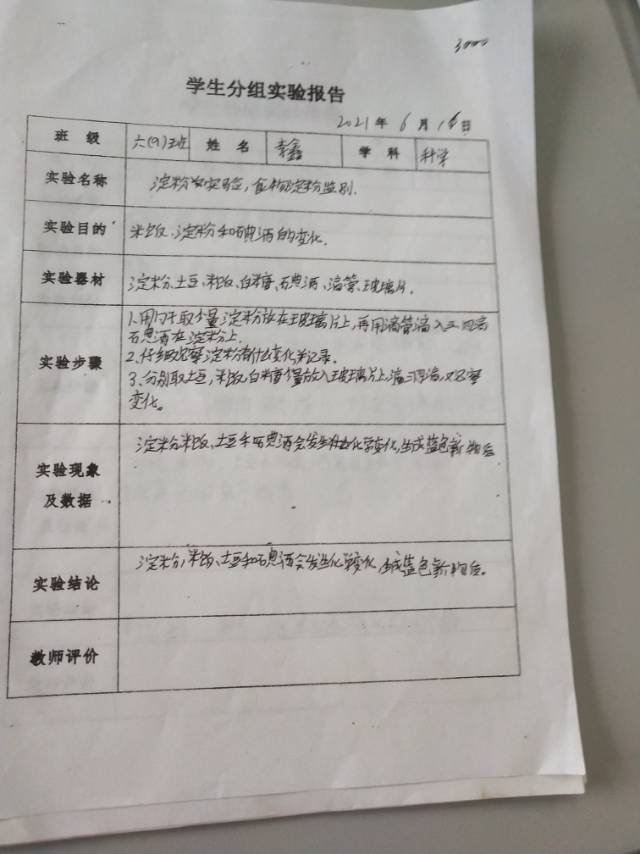 3000
学生分组实验报告
2021年6月16日
班级 六(9)班 姓名 李鑫 学科 科学
实验名称 淀粉的实验,食物淀粉鉴别.
实验目的 米饭、淀粉和碘酒的变化.
实验器材 淀粉.土豆、米饭、白糖、碘酒、滴管、玻璃片.
实验步骤
1.用勺子取少量淀粉放在玻璃片上,再用滴管滴入三四滴
碘酒在淀粉上.
2.仔细观察淀粉有什么变化并记录.
3.分别取土豆,米饭,白糖少量放入玻璃片上,滴三四滴,观察
变化。
实验现象
及数据
淀粉米饭、土豆和碘酒会发生化学变化,生成蓝色新物质
实验结论
淀粉,米饭、土豆和碘酒会发生化学变化,生成蓝色新物质。
教师评价